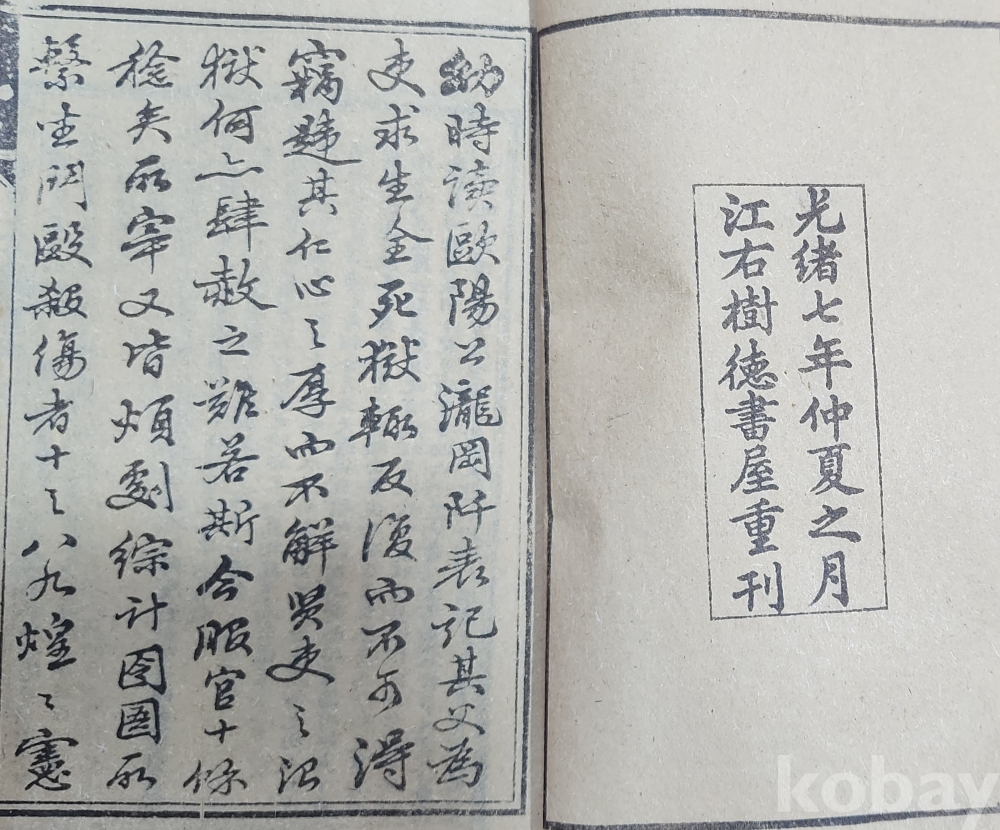 光緒七年仲夏之月
江右樹德書屋重刊
幼時讀歐陽公瀧岡阡表記其父為
吏求生全死獄輒反復而不可得
竊韙其仁心之厚而不解賢吏之治
獄何亦肆赦之難若斯今服官十餘
稔矣所宰又皆煩劇綜計囹圄所
繫生鬥毆殺傷者十之八九煌〻憲
kobay